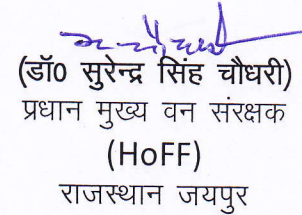 (डॉ0 सुरेन्द्र सिंह चौधरी)
प्रधान मुख्य वन संरक्षक
(HoFF)
राजस्थान जयपुर